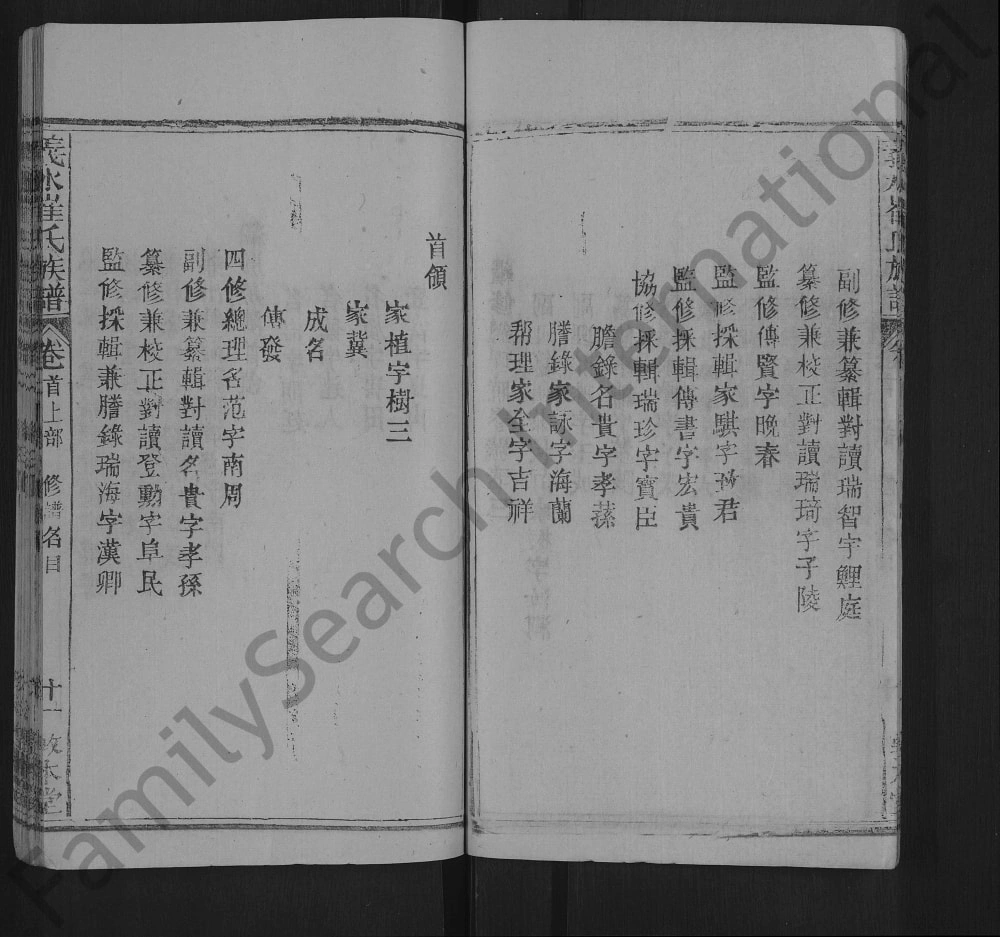 副修兼纂輯對讀瑞智字鯉庭
纂修兼校正對讀瑞琦字子陵
監修傳賢字晚春
監修採輯家騏字君
監修採輯傳書字宏貴
協修採輯瑞珍字寳臣
謄錄名貴字孝蓀
謄錄家詠字海蘭
帮理家全字吉祥
首領
家植字樹三
家冀
成名
傳發
四修總理名范字南周
副修兼纂輯對讀名貴字孝孫
纂修兼校正對讀登勳字阜民
監修採輯兼謄錄瑞海字漢卿
義水崔氏族譜 卷首上部 修譜名目 十一 敦本堂
FamilySearch International